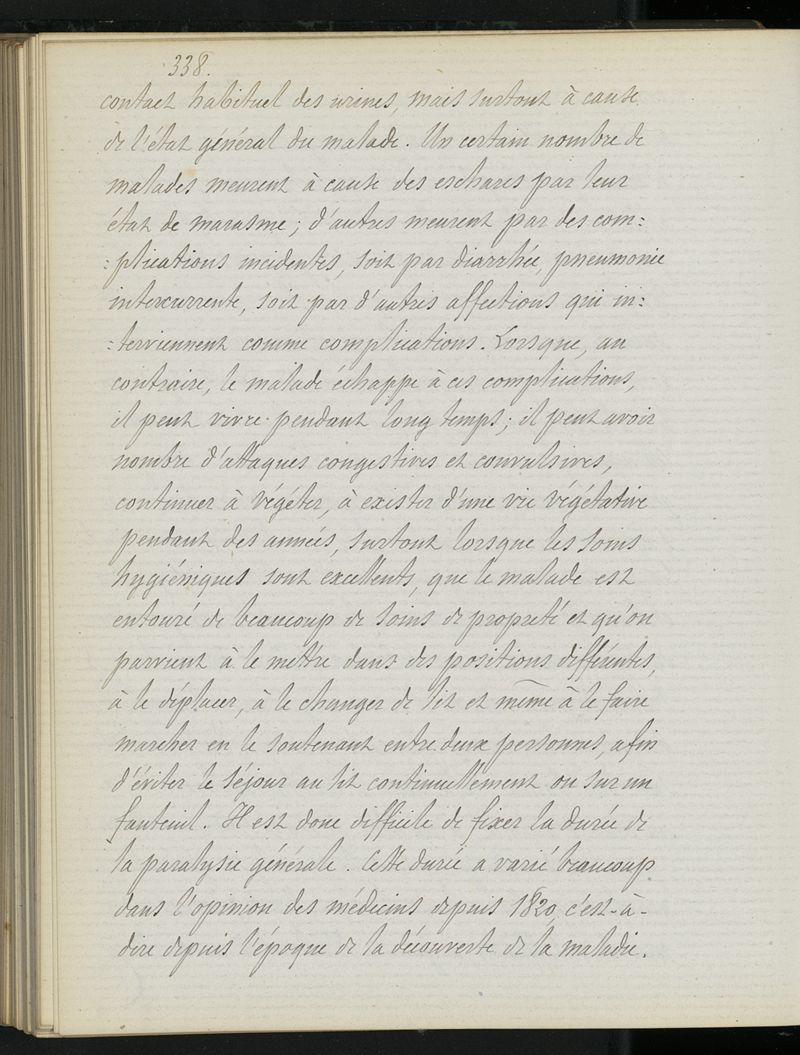 338.
contact habituel des urines, mais surtout à cause
de l'état général du malade. Un certain nombre de
malades meurent à cause des eschares par leur
état de marasme ; d'autres meurent par des com:
:plications incidentes, soit par diarrhée, pneumonie
intercurrente, soit par d'autres affections qui in:
:terviennent comme complications. Lorsque, au
contraire, le malade échappe à ces complications,
il peut vivre pendant long temps ; il peut avoir
nombre d'attaques congestives et convulsives,
continuer à végéter, à exister d'une vie végétative
pendant des années, surtout lorsque les soins
hygiéniques sont excellents, que le malade est
entouré de beaucoup de soins de propreté et qu'on
parvient à le mettre dans des positions différentes,
à le déplacer, à le changer de lit et même à le faire
marcher en le soutenant entre deux personnes, afin
d'éviter le séjour au lit continuellement ou sur un
fauteuil. Il est donc difficile de fixer la durée de
la paralysie générale. Cette durée a varié beaucoup
dans l'opinion des médecins depuis 1820, c'est-à-
dire depuis l'époque de la découverte de la maladie.